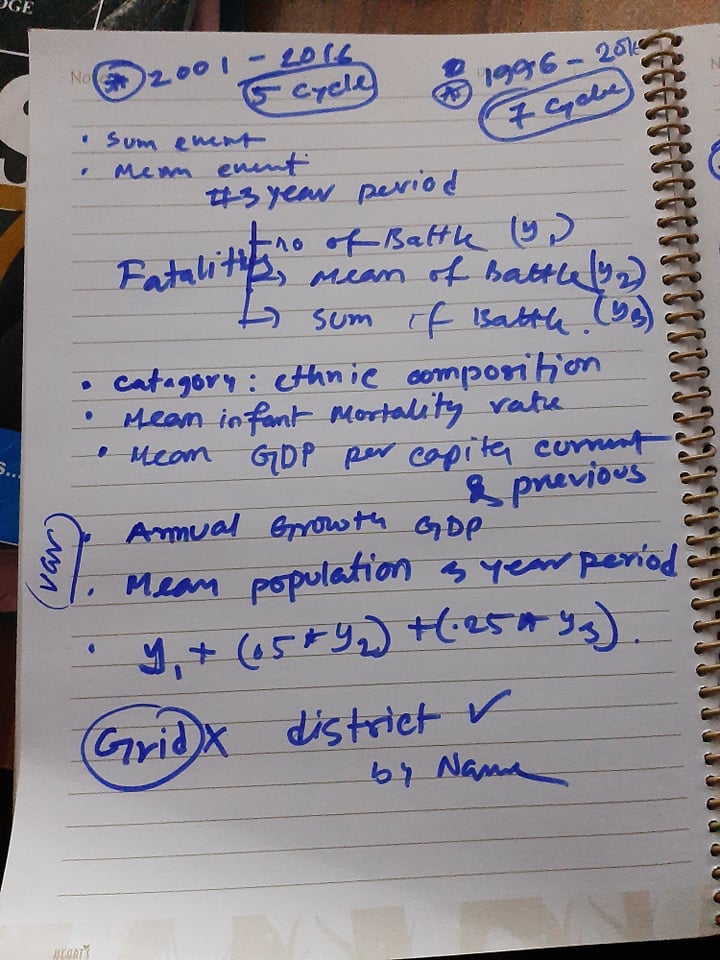 DGE
No
* 2001 - 2016
5 cycle
* 1996 -
7 cycle
• Sum event
• Mean event
#3 year period
Fatalities
no of Battle (y1)
→ Mean of Battle (y2)
→ sum of Battle. (y3)
• category: ethnic composition
• Mean infant Mortality rate
• Mean GDP per capita current
& previous
(var)
• Annual Growth GDP
• Mean population 3 year period
• y1 + (.5 * y2) + (.25 * y3).
Grid X district ✓
by Name